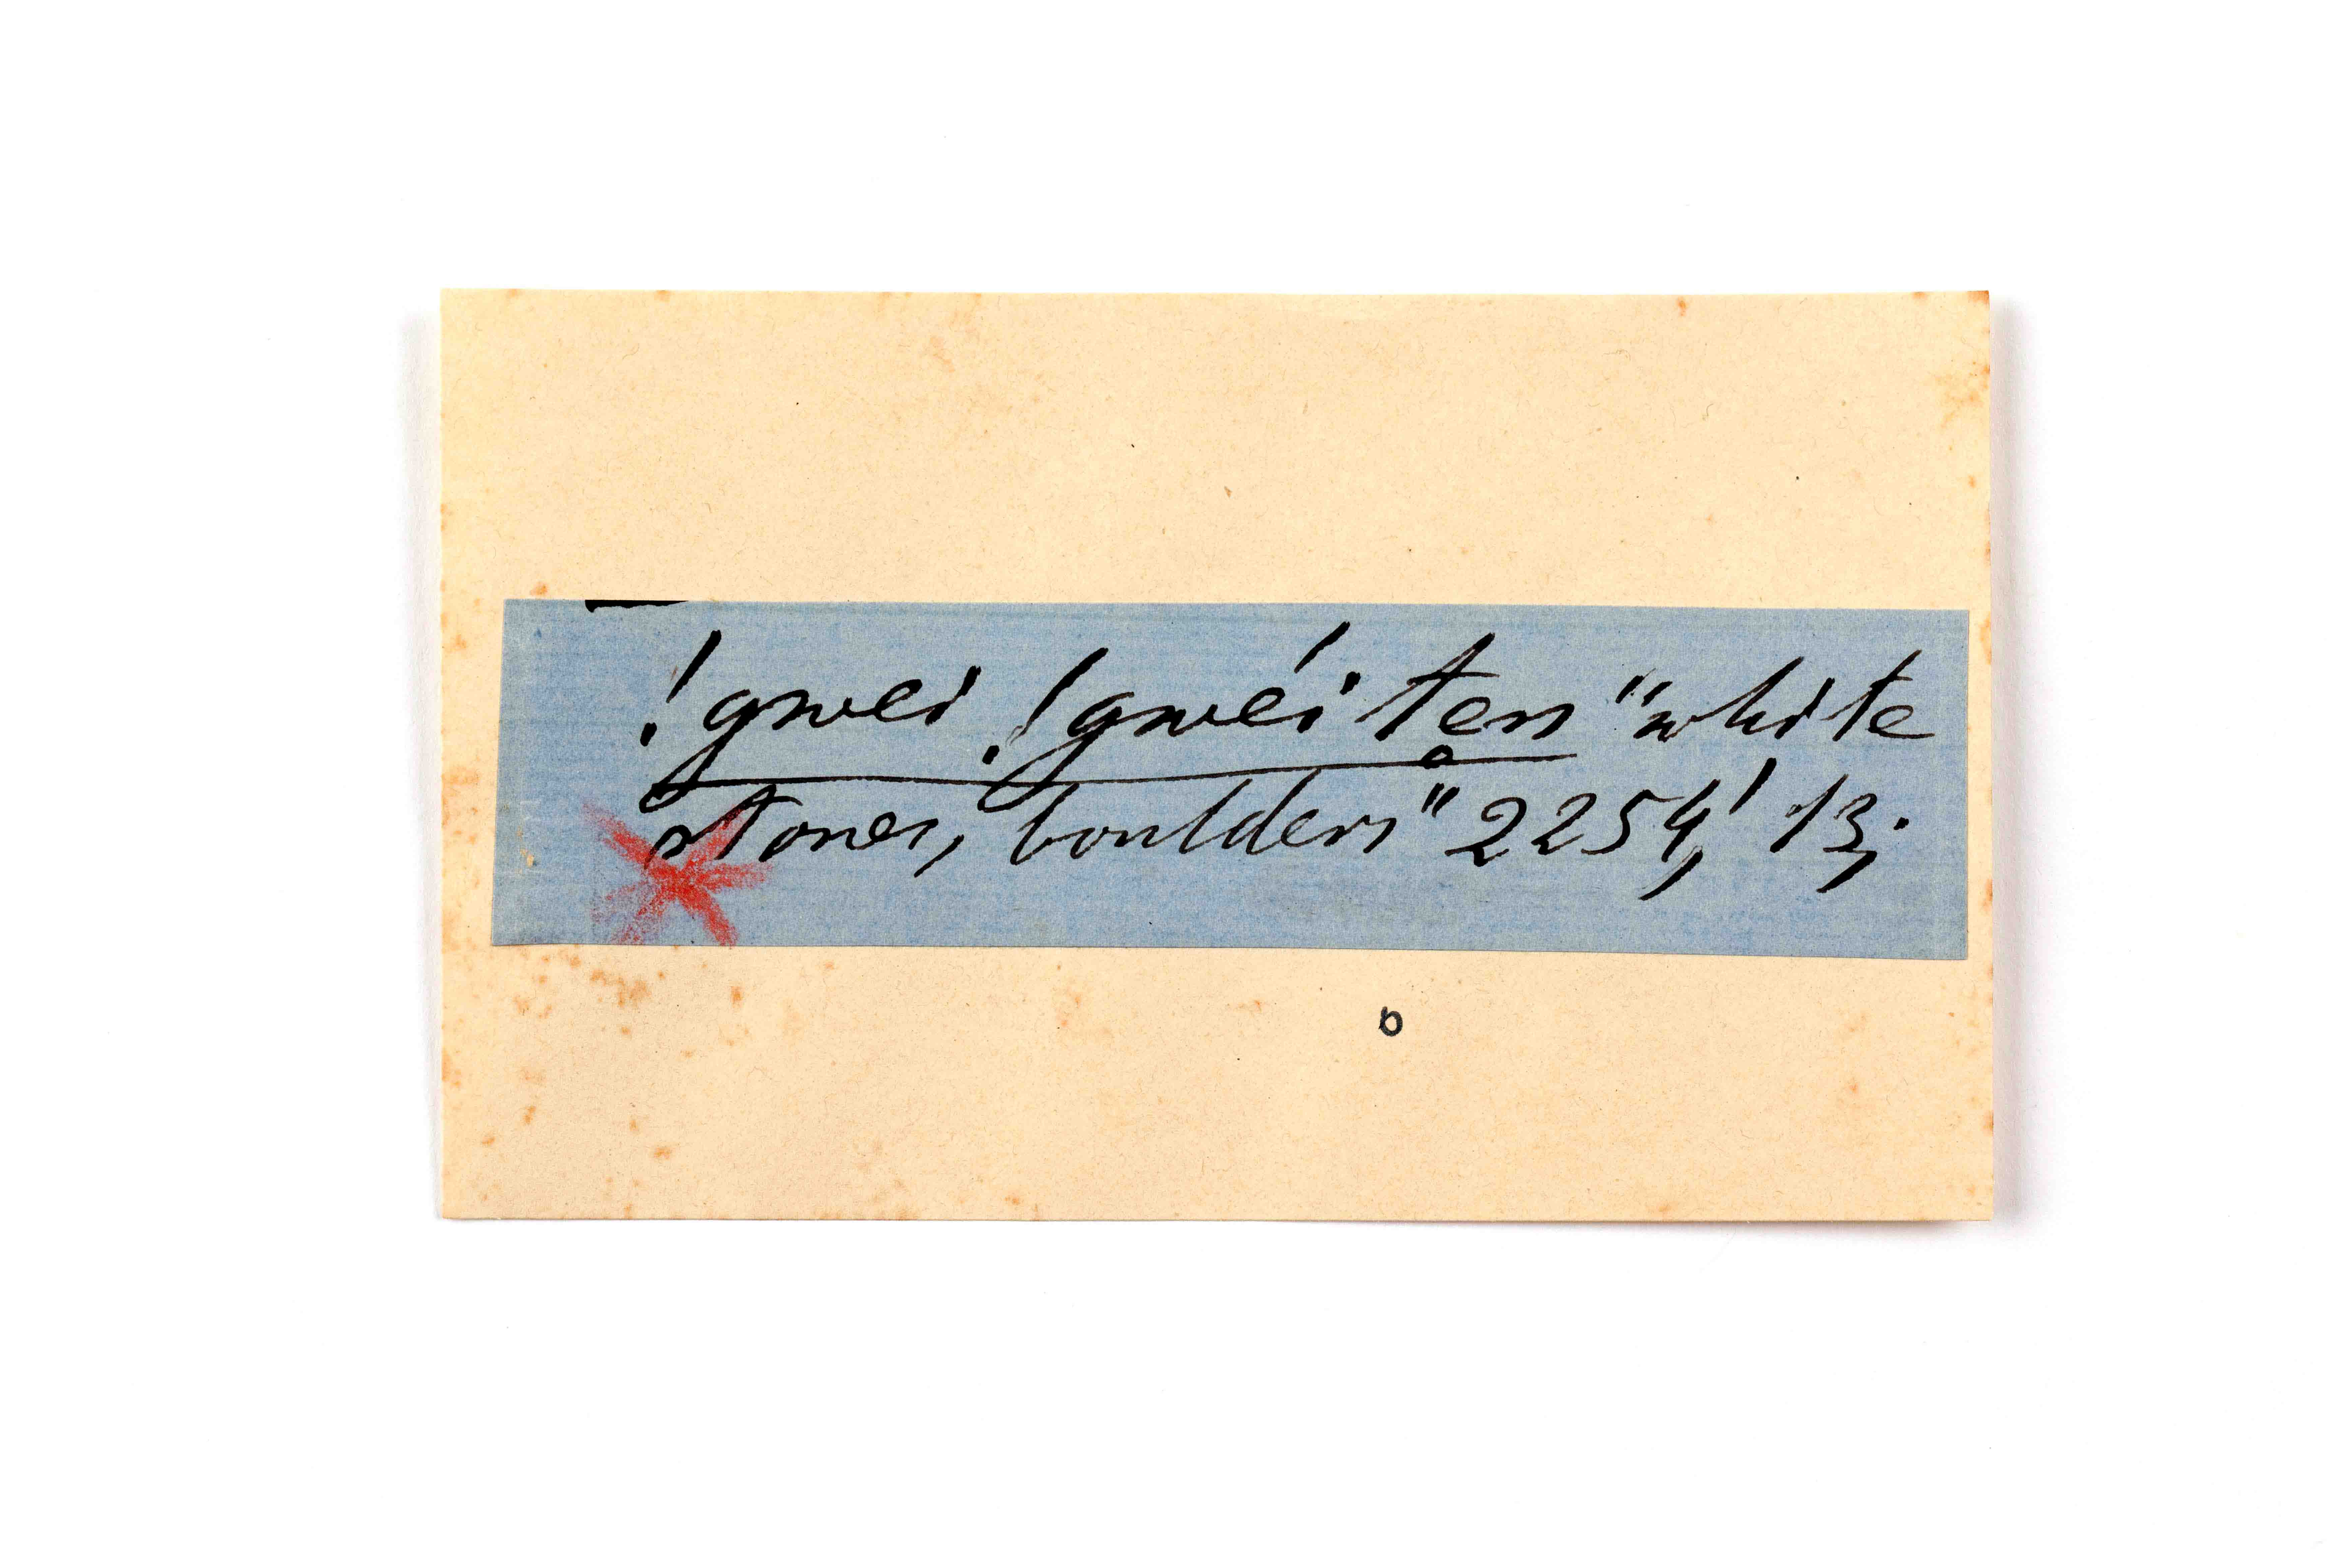 !gwei !gwéi ten̥ "white
stones, boulders" 2254,' 13;
b